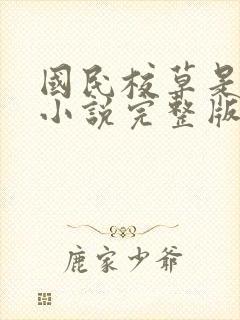 國民校草是
小說完整版
鹿家少爺